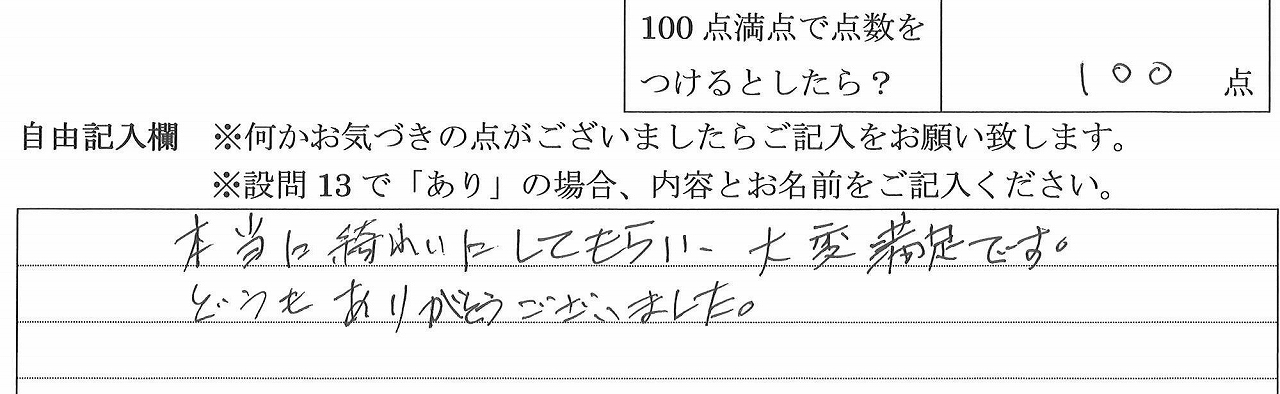 100点満点で点数を
つけるとしたら？
100 点
自由記入欄 ※何かお気づきの点がございましたらご記入をお願い致します。
※設問13で「あり」の場合、内容とお名前をご記入ください。
本当に綺れいにしてもらい、大変満足です。
どうもありがとうございました。